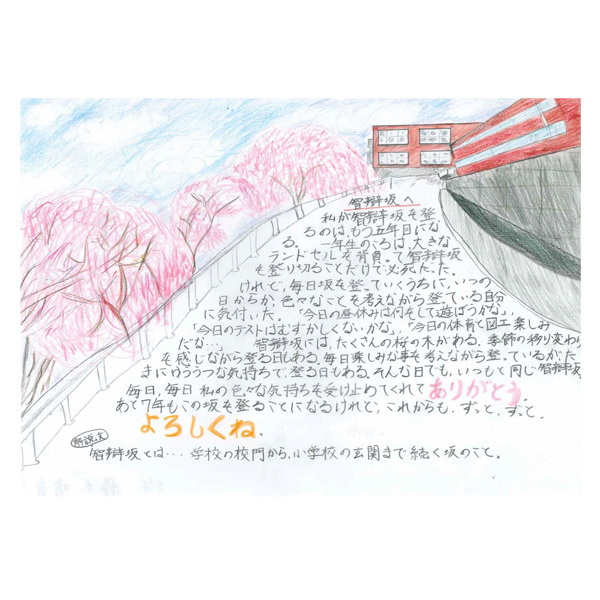 智辯坂へ
私が智辯坂を登
るのは、もう五年目にな
る。一年生のころは、大きな
ランドセルを背負って智辯坂
を登り切ることだけで必死だった。
けれど、毎日坂を登っていくうちに、いつの
日からか、色々なことを考えながら登っている自分
に気付いた。「今日の昼休みは何をして遊ぼうかな」、
「今日のテストはむずかしくないかな」、「今日の体育と図工楽しみ
だな…」 智辯坂には、たくさんの桜の木がある。季節の移り変わり
を感じながら登る日もある。毎日楽しみな事を考えながら登っているが、た
まにゆううつな気持ちで登る日もある。そんな日でも、いつもと同じ智辯坂
毎日、毎日私の色々な気持ちを受け止めてくれてありがとう。
あと7年もこの坂を登ることになるけれど、これからも、ずっと、ずっと、
よろしくね。
解説文
智辯坂とは…学校の校門から、小学校の玄関まで続く坂のこと。